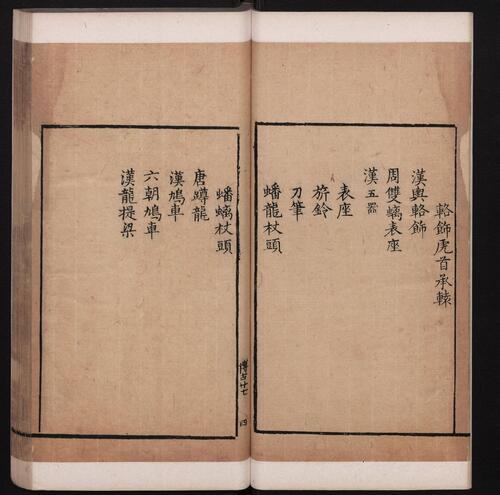 輅飾虎首承轅
漢輿輅飾
周雙螭表座
漢五器
表座
旂鈴
刀筆
蟠龍杖頭
博古廿七
四
蟠螭杖頭
唐蹲龍
漢鳩車
六朝鳩車
漢龍提梁